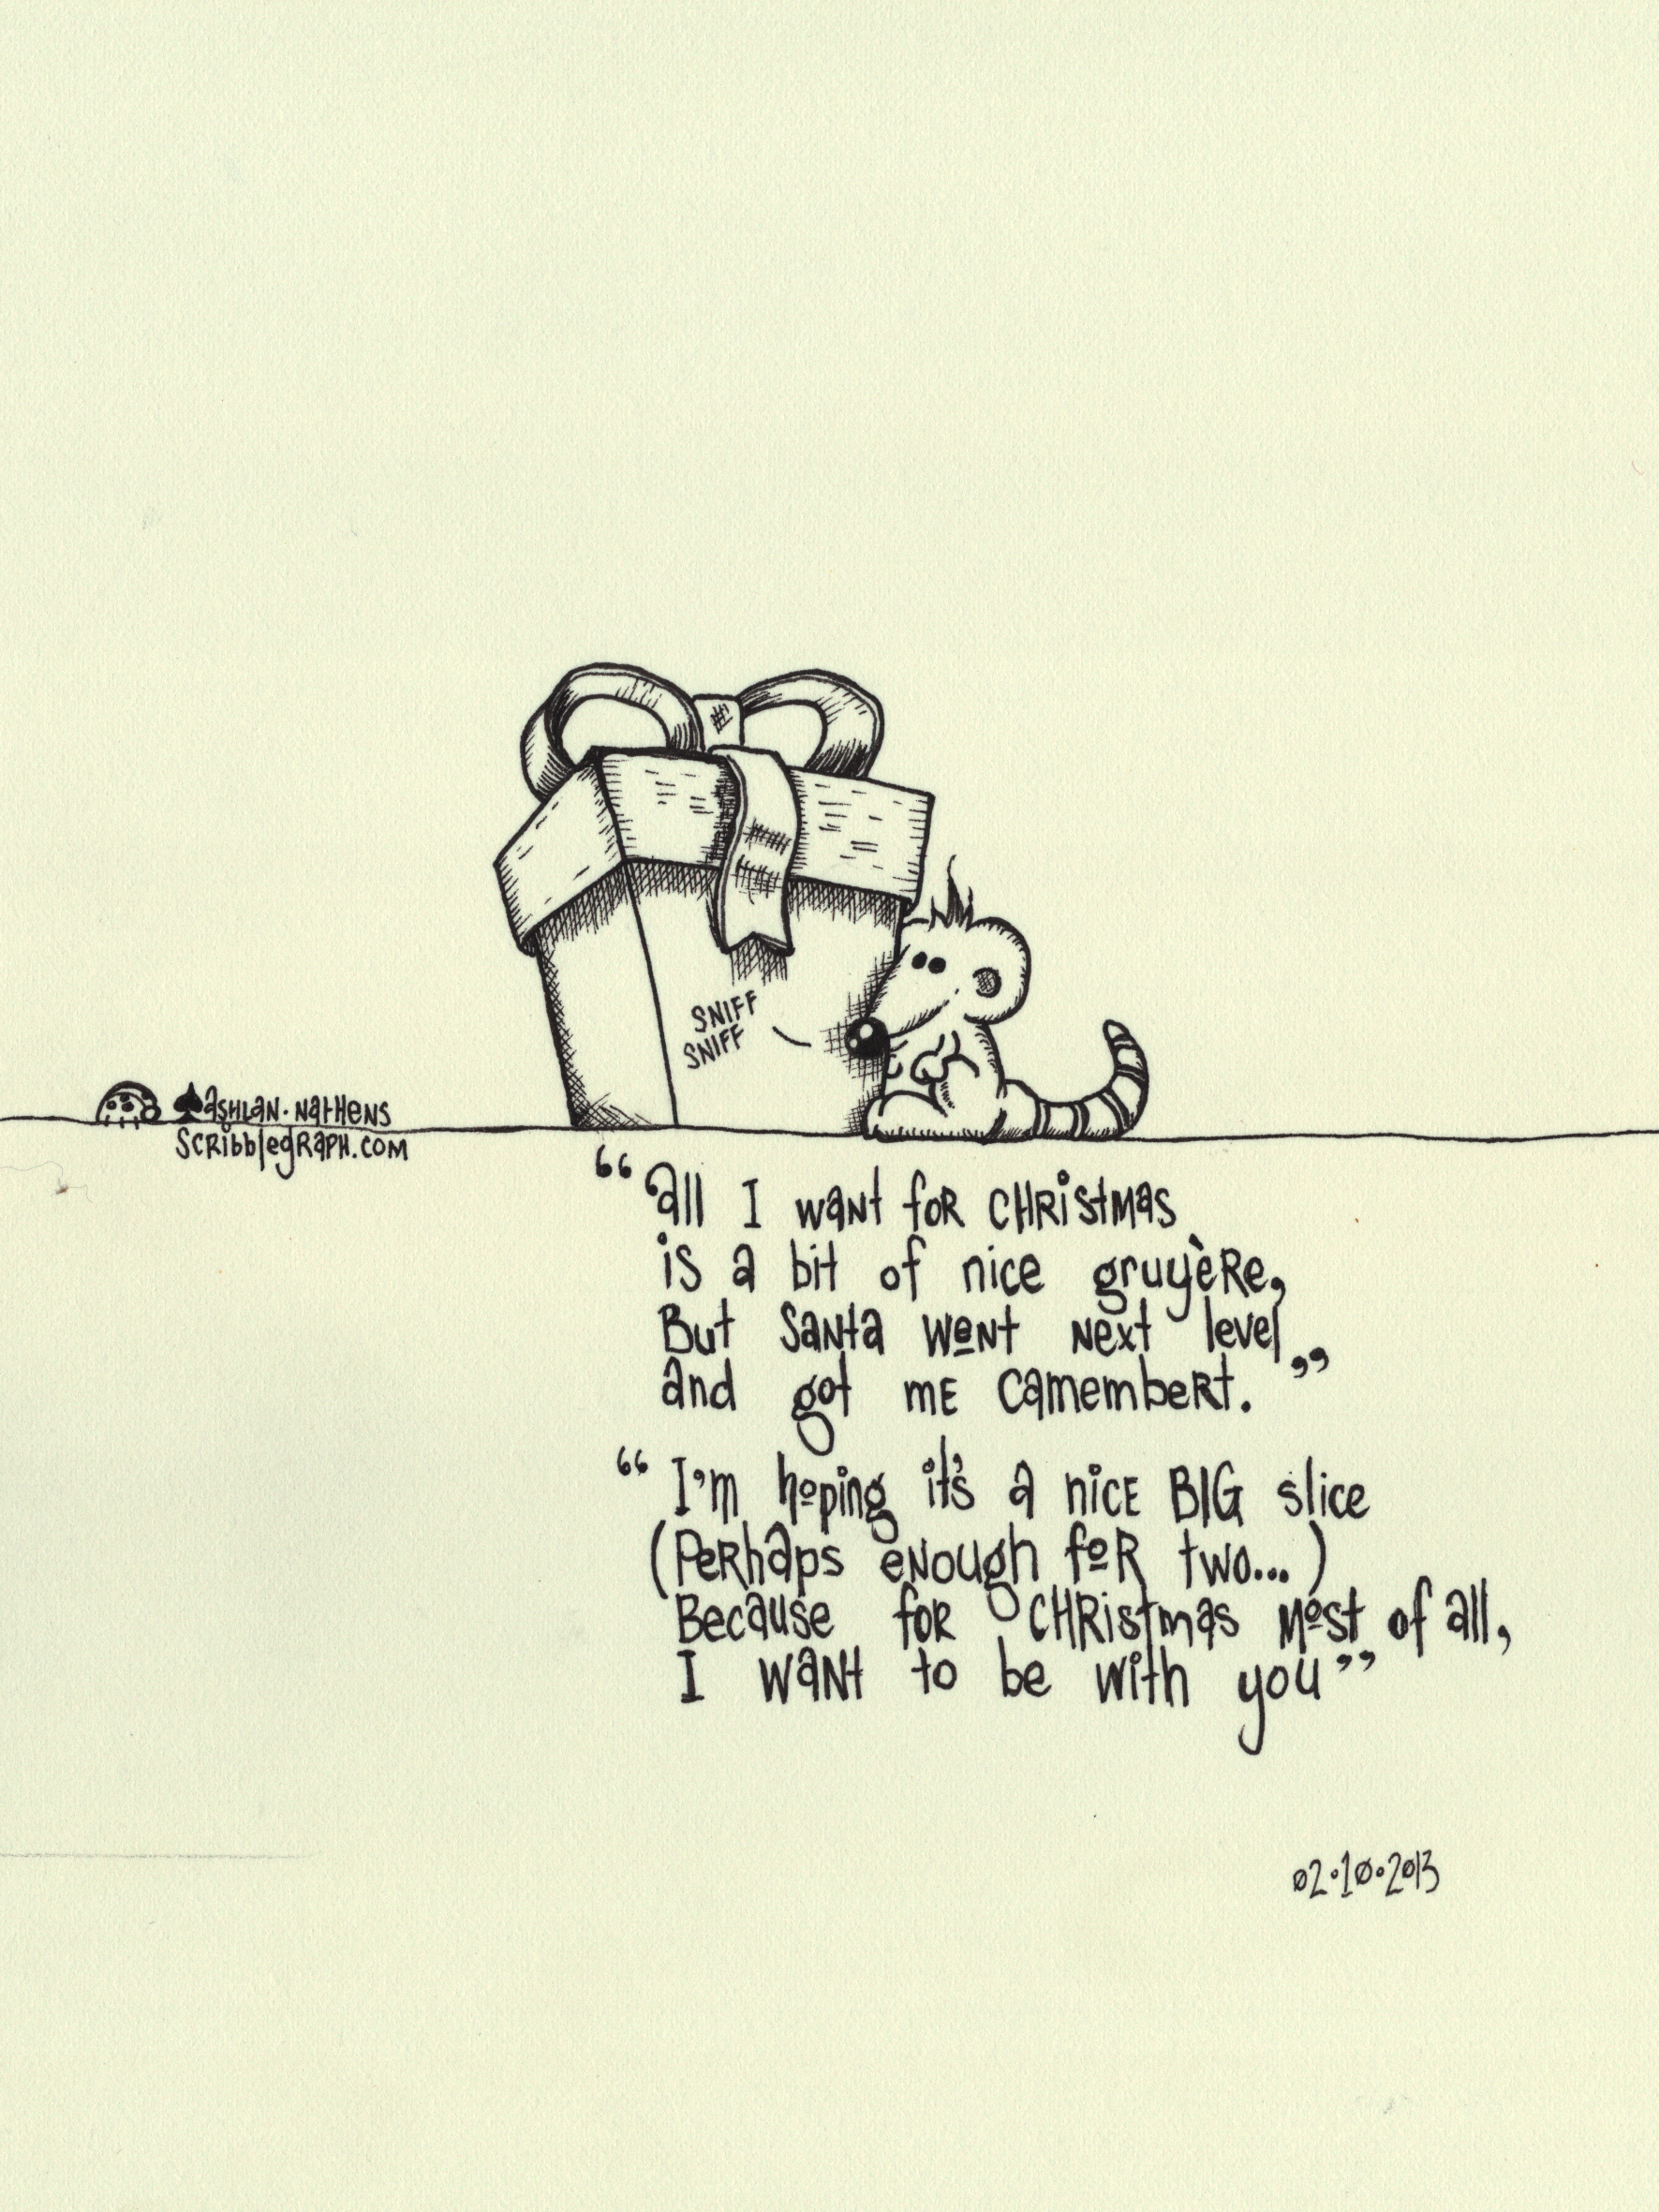 SNIFF
SNIFF
ASHLAN · NATHENS
SCRibblegRaPH.COM
“all I waNt foR CHRistMas
is a bit of nice gruyèRe,
But SaNta WeNt Next level
and got mE CamembeRt.”
“I'm hoping it's a nicE BIG slice
(PeRhaps eNough foR two...)
Because foR CHRistmas Most of all,
I WaNt to be with you”
02·10·2013